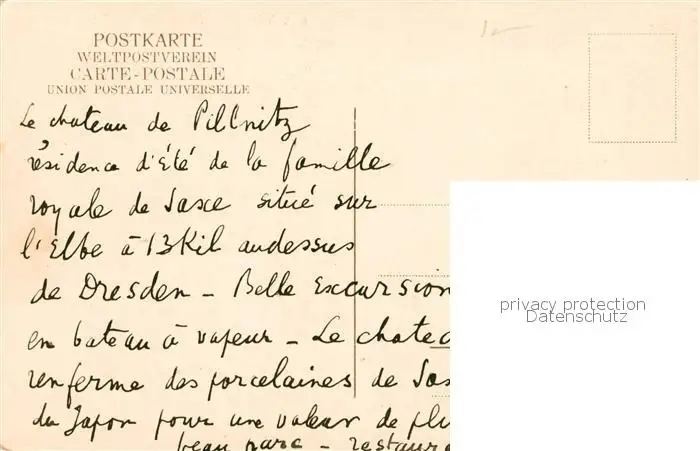 POSTKARTE
WELTPOSTVEREIN
CARTE-POSTALE
UNION POSTALE UNIVERSELLE
Le chateau de Pillnitz
résidence d'été de la famille
royale de Saxe situé sur
l'Elbe à 13 Kil au dessus
de Dresden – Belle excursion
en bateau à vapeur – Le chatea
renferme des porcelaines de Sax
du Japon pour une valeur de plu
beau parc – restaura
privacy protection
Datenschutz